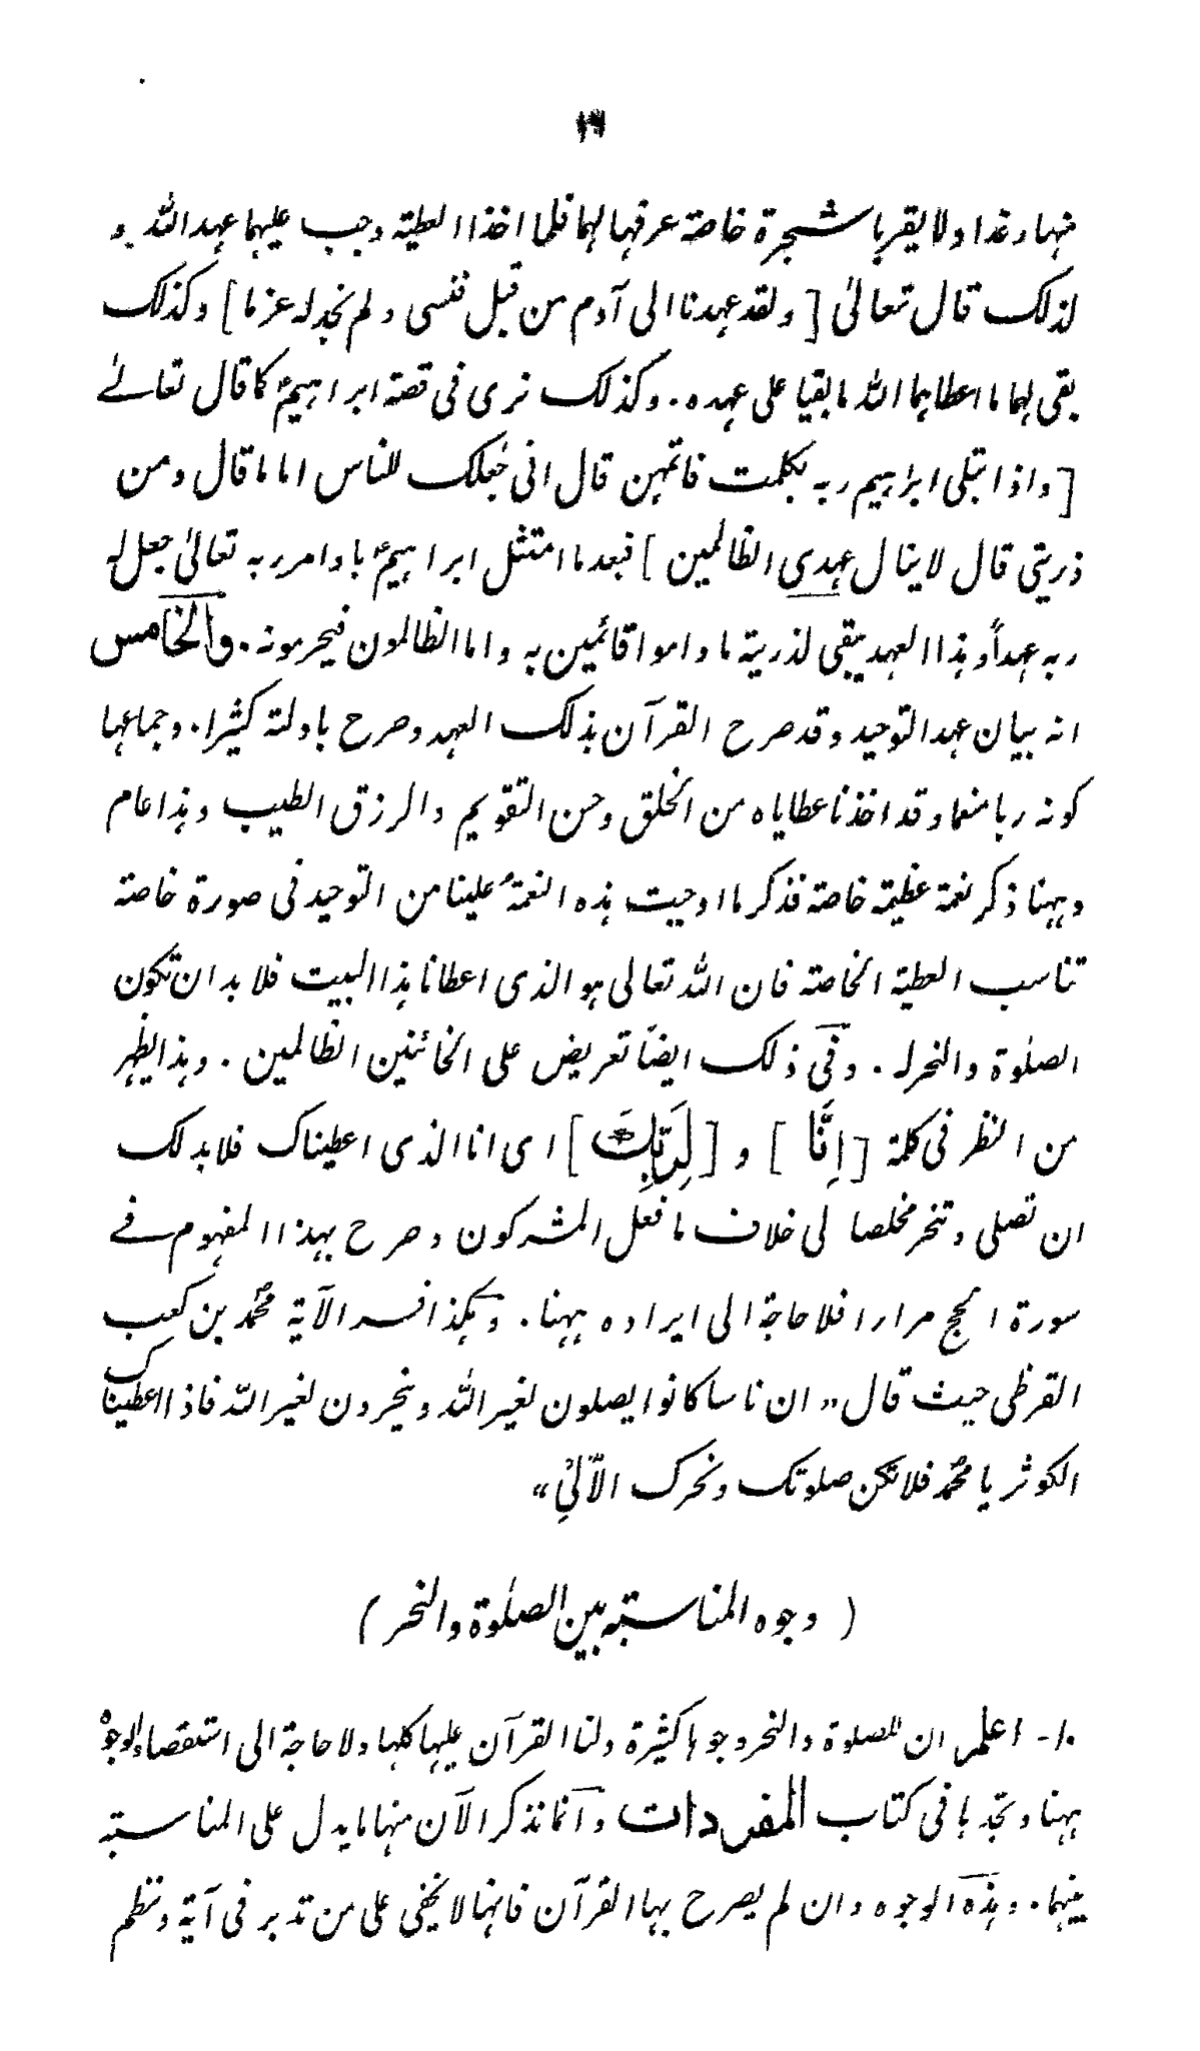 ۱۹
منها رغدا ولا يقربا شجرة خاصة عرفها لهما فلما اخذا العطية وجب عليهما عهد الله و
لذلك قال تعالىٰ [ ولقد عهدنا الى آدم من قبل فنسى ولم نجد له عزما ] وكذلك
بقى لهما ما اعطاهما الله ما بقيا على عهده. وكذلك نرى فى قصة ابراهيمؑ كما قال تعالےٰ
[ واذا بتلى ابراهيم ربه بكلمت فاتمهن قال انى جٰعلك للناس اماما قال ومن
ذريتى قال لا ينال عهدى الظالمين ] فبعد ما امتثل ابراهيمؑ باوامر ربه تعالىٰ جعل له
ربه عهداً وهذا العهد يبقى لذريته ما داموا قائمين به واما الظالمون فيحرمونه. والخامس
انه بيان عهد التوحيد وقد صرح القرآن بذلك العهد وصرح بادلته كثيرا. وجماعها
كونه ربا منعما وقد اخذنا عطاياه من الخلق وحسن التقويم والرزق الطيب وهذا عام
وههنا ذكر نعمة عظيمة خاصة فذكر ما اوجبت هذه النعمة علينا من التوحيد فى صورة خاصة
تناسب العطية الخاصة فان الله تعالى هو الذى اعطانا هذا البيت فلا بد ان تكون
الصلٰوة والنحر له. وفى ذلك ايضاً تعريض على الخائنين الظالمين. وهذا يظهر
من النظر فى كلمة [ اِنَّا ] و [ لِرَبِّكَ ] اى انا الذى اعطيناك فلا بد لك
ان تصلى وتنحر مخلصا لى خلاف ما فعل المشركون وصرح بهذا المفهوم فے
سورة الحج مرارا فلا حاجة الى ايراده ههنا. وهكذا فسر الآية محمد بن كعب
القرظى حيث قال „ ان ناسا كانوا يصلون لغير الله وينحرون لغير الله فاذا اعطيناك
الكوثر يا محمد فلا تكن صلوتك ونحرك الّا لِیْ“
( وجوه المناسبة بين الصلٰوة والنحر )
۱۰- اعلم ان للصلوة والنحر وجوها كثيرة ولنا القرآن عليها كلها ولا حاجة الى استقصاء الوجوه
ههنا وتجدها فى كتاب المفردات وانما نذكر الآن منها ما يدل على المناسبة
بينهما. وهذه الوجوه وان لم يصرح بها القرآن فانها لا تخفى على من تدبر فى آية ونظم